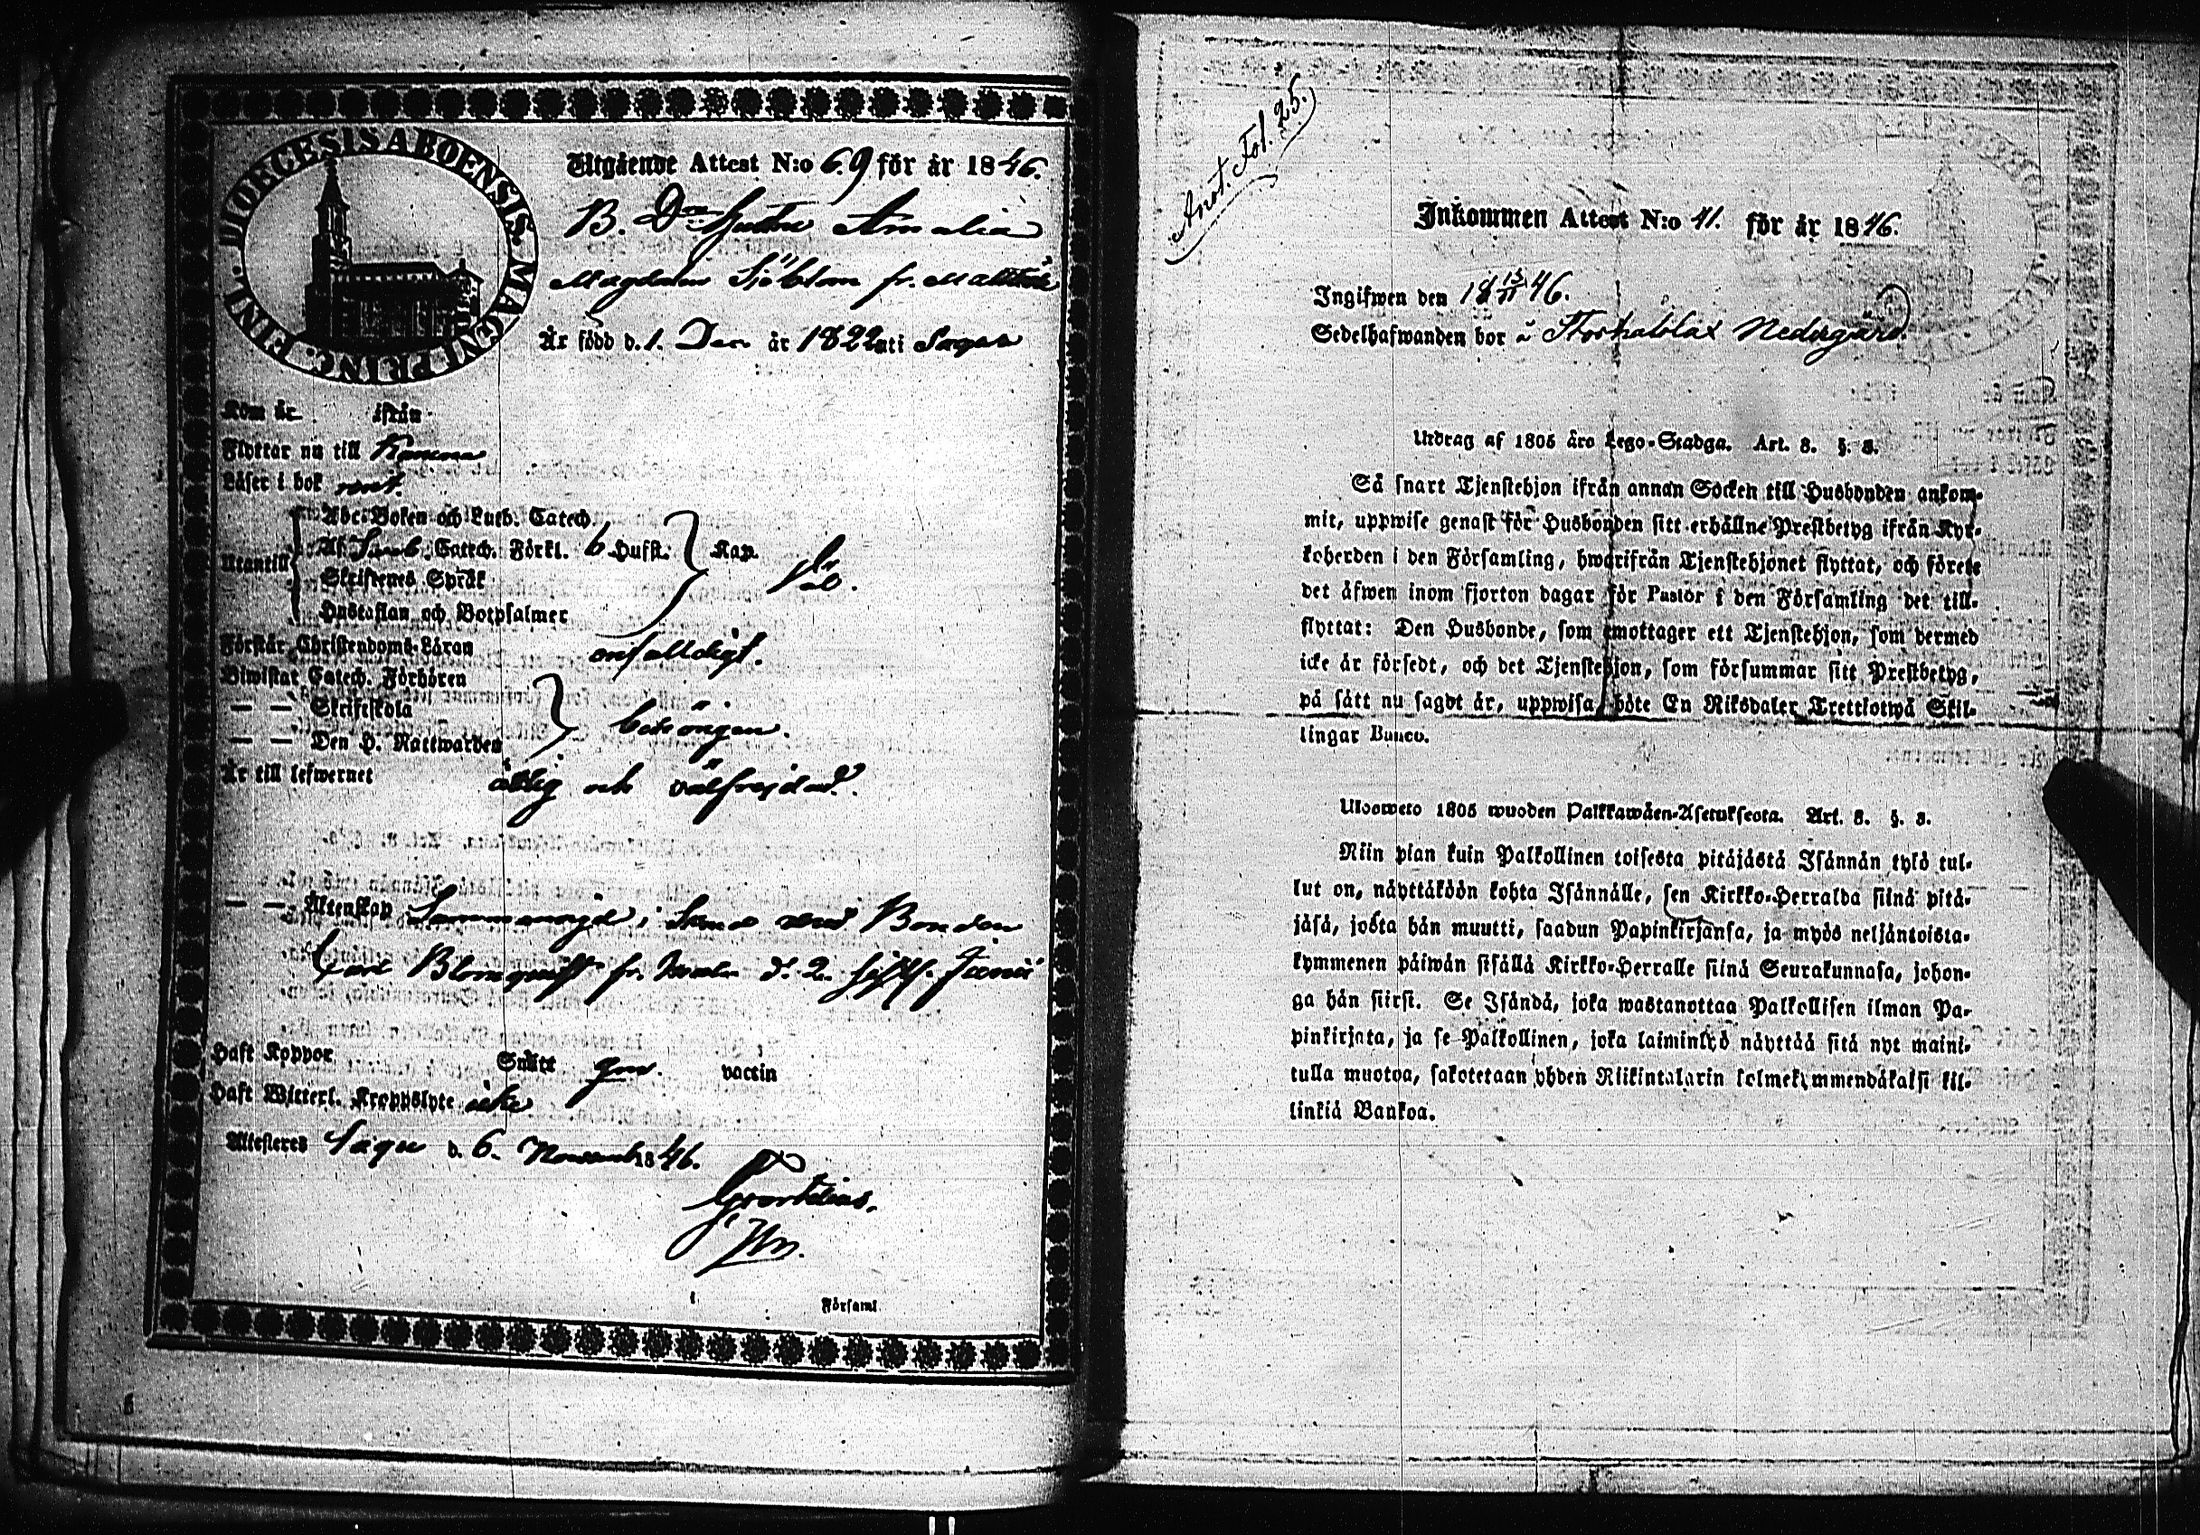 DIOECESIS ABOENSIS. MAGNI PRINC. FINL.
Utgående Attest N:o 69 för år 1846.
B. Dr Amalia
Magdalena Sjöblom fr.
Är född d. 1. Dec. år 1822 uti Sagu
Kom år ifrån
Flyttar nu till
Läser i bok rent.
Utantill
Abc-Boken och Luth. Catech.
Af Catech. Förkl. 6 Hufst. Kap.
Skriftenes Språk
Hustaflan och Botpsalmer
Förstår Christendoms-Läran enfalldigt.
Biwistat Catech. Förhören
— — Skriftskola behörigen.
— — Den H. Nattwarden
Är till lefwernet ärlig och välfrejdad.
— — Äktenskap Bonden
Carl Blomqvist fr. d. 2.
Haft Koppor Smått gm. vaccin
Haft Witterl. Kroppslyte icke
Attesteres Sagu d. 6. November 1846.
Församl.
Anot. Fol. 25.
Inkommen Attest N:o 41. för år 1846.
Ingifwen den 18 13/11 46.
Sedelhafwanden bor å Storhalslax Nedergård.
Utdrag af 1805 års Lego-Stadga. Art. 8. §. 3.
Så snart Tjenstehjon ifrån annan Socken till Husbonden ankom-
mit, uppwise genast för Husbonden sitt erhållne Prestbetyg ifrån Kyr-
koherden i den Församling, hwarifrån Tjenstehjonet flyttat, och förete
det äfwen inom fjorton dagar för Pastor i den Församling det till-
flyttat: Den Husbonde, som emottager ett Tjenstehjon, som dermed
icke är försedt, och det Tjenstehjon, som försummar sitt Prestbetyg,
på sätt nu sagdt är, uppwisa, böte En Riksdaler Trettiotwå Skil-
lingar Banco.
Ulosweto 1805 wuoden Palkkawäen-Asetuksesta. Art. 8. §. 3.
Niin pian kuin Palkollinen toisesta pitäjästä Isännän tykö tul-
lut on, näyttäköön kohta Isännälle, sen Kirkko-Herralda siinä pitä-
jäsä, josta hän muutti, saadun Papinkirjansa, ja myös neljäntoista-
kymmenen päiwän sisällä Kirkko-Herralle siinä Seurakunnasa, johon-
ga hän siirsi. Se Isändä, joka wastanottaa Palkollisen ilman Pa-
pinkirjata, ja se Palkollinen, joka laiminlyö näyttää sitä nyt maini-
tulla muotoa, sakotetaan yhden Riikintalarin kolmekymmendäkaksi kil-
linkiä Bankoa.